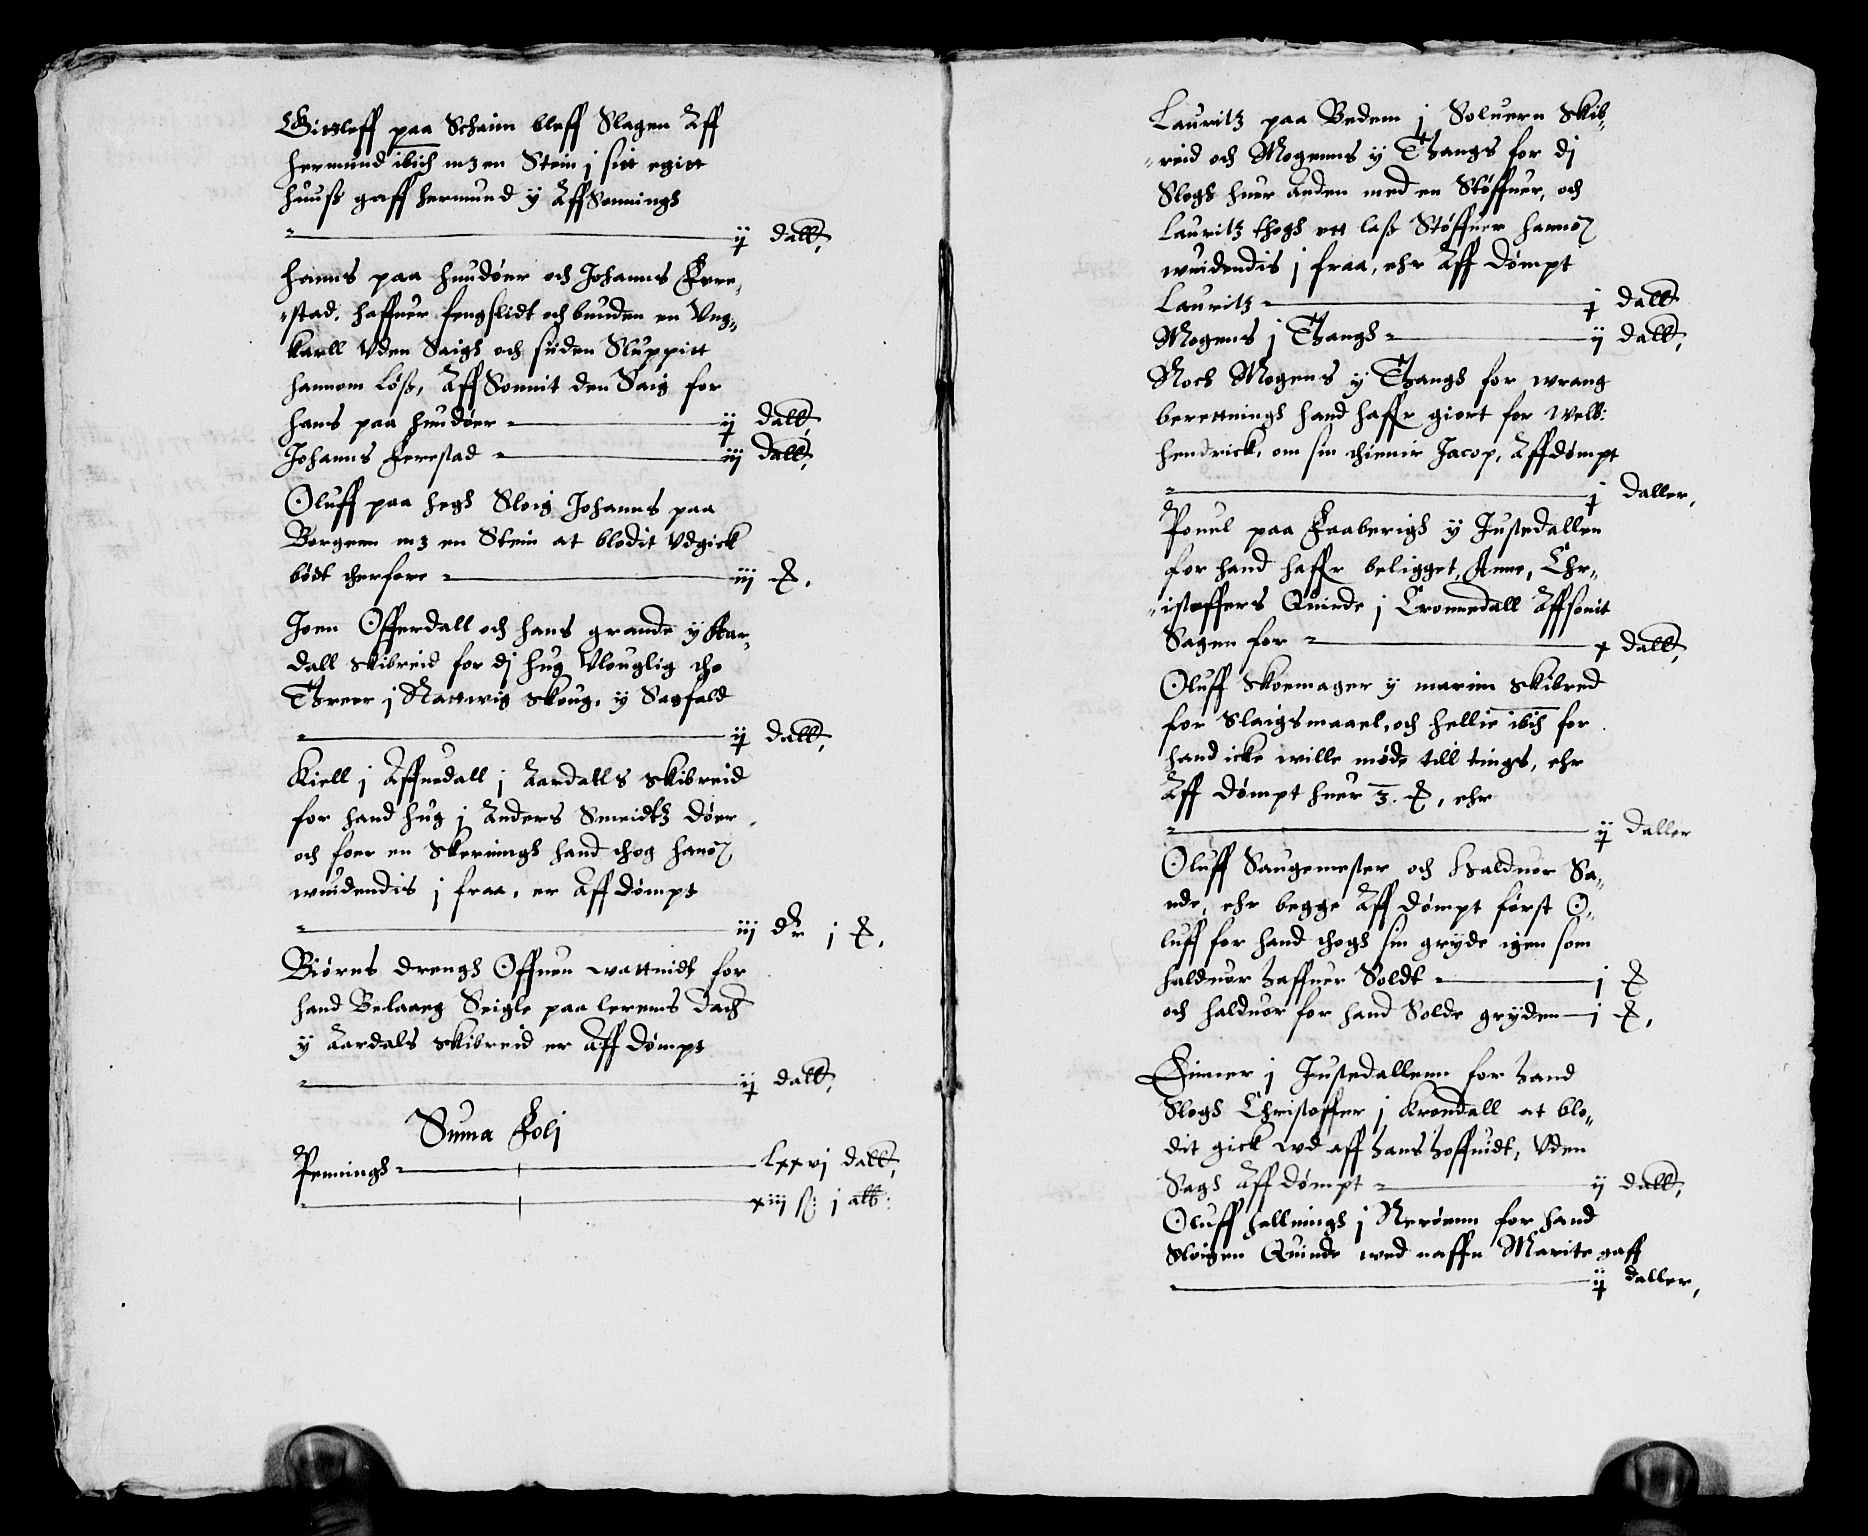 Gittleff paa Schaim bleff Slagen Aff
hermund ibid: mz en Stein j sitt egitt
huuss gaff hermund y Affsonningh
ij dall,
hanns paa hundøer och Johanns Fere,
stad, haffuer fengslidt och bunden en Ung,
karll Uden Saigh och siiden Sluppitt
hannom Løss, Aff Sonnit den Saig for
hans paa hundøer ij dall,
Johanns Ferestad iij dall,
Oluff paa hegh Sloig Johanns paa
Borgenn mz en Stein at blodit Udgick
bødt therfore iij
Joen Offerdall och hans grande y Aar,
dall skibreid for dj hug Ulouglig tho
Threer j Nattwig skoug, y Sagfald
ij dall,
Kiell j Affuedall j Aardalls skibreid
for hand hug j Anders Smeidtz døer,
och foer en Skerningh hand thog hanom
wuidendis j fraa, er Aff dømpt
iij dr j
Biørns drengh Offuen wattnidt for
hand Belaaeg Seigle paa lerens dach
y Aardals skibreid er Aff dømpt
ij dall,
Suma Folj
Penningh lxxvj dall,
xiij ß j alb:
Lauritz paa Bedem j Soluern Skib,
reid och Mogenns y Thangs for dj
Slogh huer anden med en Støffuer, och
Lauritz thogh ett lass Støffuer hannom
wuidendis j fraa, ehr Aff dømpt
Lauritz j dall
Mogens j Thangh ij dall,
Noch Mogens y Thangh for wrang
berettningh hand haffr giort for Welb:
hendrick, om sin thienir Jacop, Affdømpt
j daller,
Pouul paa Faaberigh y Justedallen
for hand haffr beligget, Anne, Chr,
istoffers Quinde j Cronnedall Affsonit
Sagen for x dall,
Oluff Skoemager y marim skibred
for Slaigsmaael, och hellie ibid: for
hand icke wille møde till tings, ehr
Aff dømpt huer 3. , ehr
ij daller
Oluff Saugemester och Halduor Sa,
nde, ehr begge Aff dømpt først O,
luff for hand thogh sin gryde igen som
halduor haffuer Soldt j
och halduor for hand Solde gryden j
Einer j Justedallenn for hand
Slogh Christoffer j Krondall at blo,
dit gick wd aff hans hoffuidt, Uden
Sagh Aff dømpt ij dall,
Oluff hellningh j Nerøenn for hand
Sloigen Quinde wed naffn Marite gaff
ij daller,